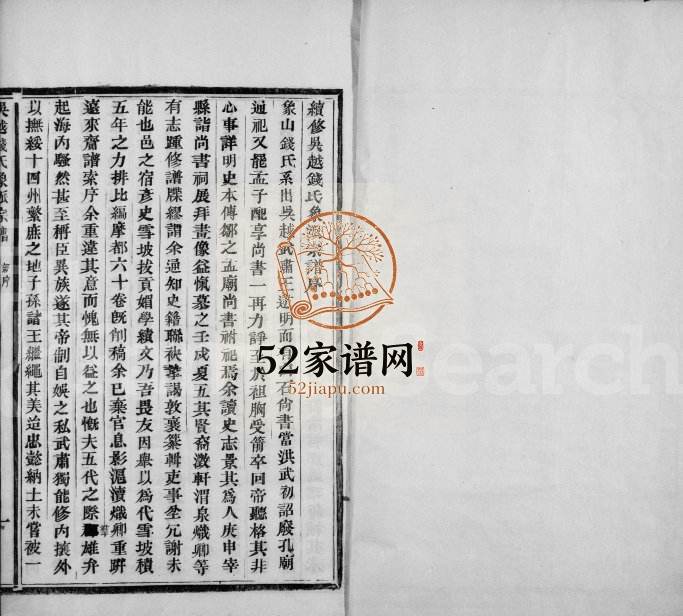 續修吳越錢氏象派宗譜序
象山錢氏系出吳越武肅王迨明而石尚書當洪武初詔廢孔廟
通祀又罷孟子配享尚書一再力諍至於袒胸受箭卒回帝聽格其非
心事詳明史本傳鄒之孟廟尚書祔祀焉余讀史志景其為人庚申宰
縣詣尚書祠展拜畫像益慨慕之壬戍夏五其賢裔澂軒渭泉熾卿等
有志踵修譜牒繆謂余通知史籍聯袂摯謁敦襄纂輯吏事坌冗謝未
能也邑之宿彥史雪坡拔貢媚學績文乃吾畏友因舉以為代雪坡積
五年之力排比編摩都六十卷既削稿余已棄官息影滬瀆熾卿重趼
遠來齋譜索序余重違其意而愧無以益之也慨夫五代之際羣雄并
起海內騷然甚至稱臣異族遂其帝制自娛之私武肅獨能修內攘外
以撫綏十四州蘩庶之地子孫諸王繼繩其美迨忠懿納土未嘗被一
吳越錢氏象派宗譜
序
一
52家谱网
52jiapu.com
Search